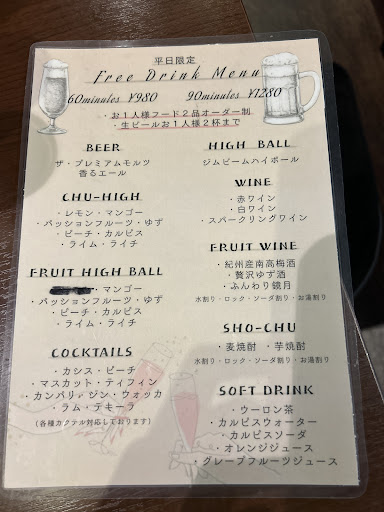 平日限定
Free Drink Menu
60minutes ¥980 90minutes ¥1280
・お1人様フード2品オーダー制
・生ビールお1人様2杯まで
BEER
ザ・プレミアムモルツ
香るエール
CHU-HIGH
・レモン・マンゴー
・パッションフルーツ・ゆず
・ピーチ・カルピス
・ライム・ライチ
FRUIT HIGH BALL
・マンゴー
・パッションフルーツ・ゆず
・ピーチ・カルピス
・ライム・ライチ
COCKTAILS
・カシス・ピーチ
・マスカット・ティフィン
・カンパリ・ジン・ウォッカ
・ラム・テキーラ
(各種カクテル対応しております)
HIGH BALL
ジムビームハイボール
WINE
・赤ワイン
・白ワイン
・スパークリングワイン
FRUIT WINE
・紀州産南高梅酒
・贅沢ゆず酒
・ふんわり鏡月
水割り・ロック・ソーダ割り・お湯割り
SHO-CHU
・麦焼酎 ・芋焼酎
水割り・ロック・ソーダ割り・お湯割り
SOFT DRINK
・ウーロン茶
・カルピスウォーター
・カルピスソーダ
・オレンジジュース
・グレープフルーツジュース